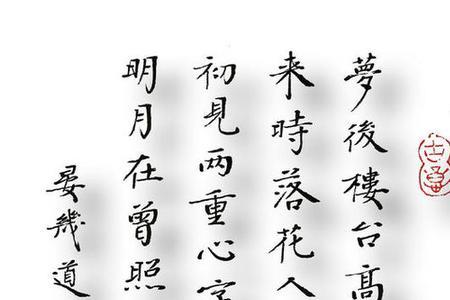 夢後樓台高
来時落花人
初見两重心字
明月在曾照
晏幾道